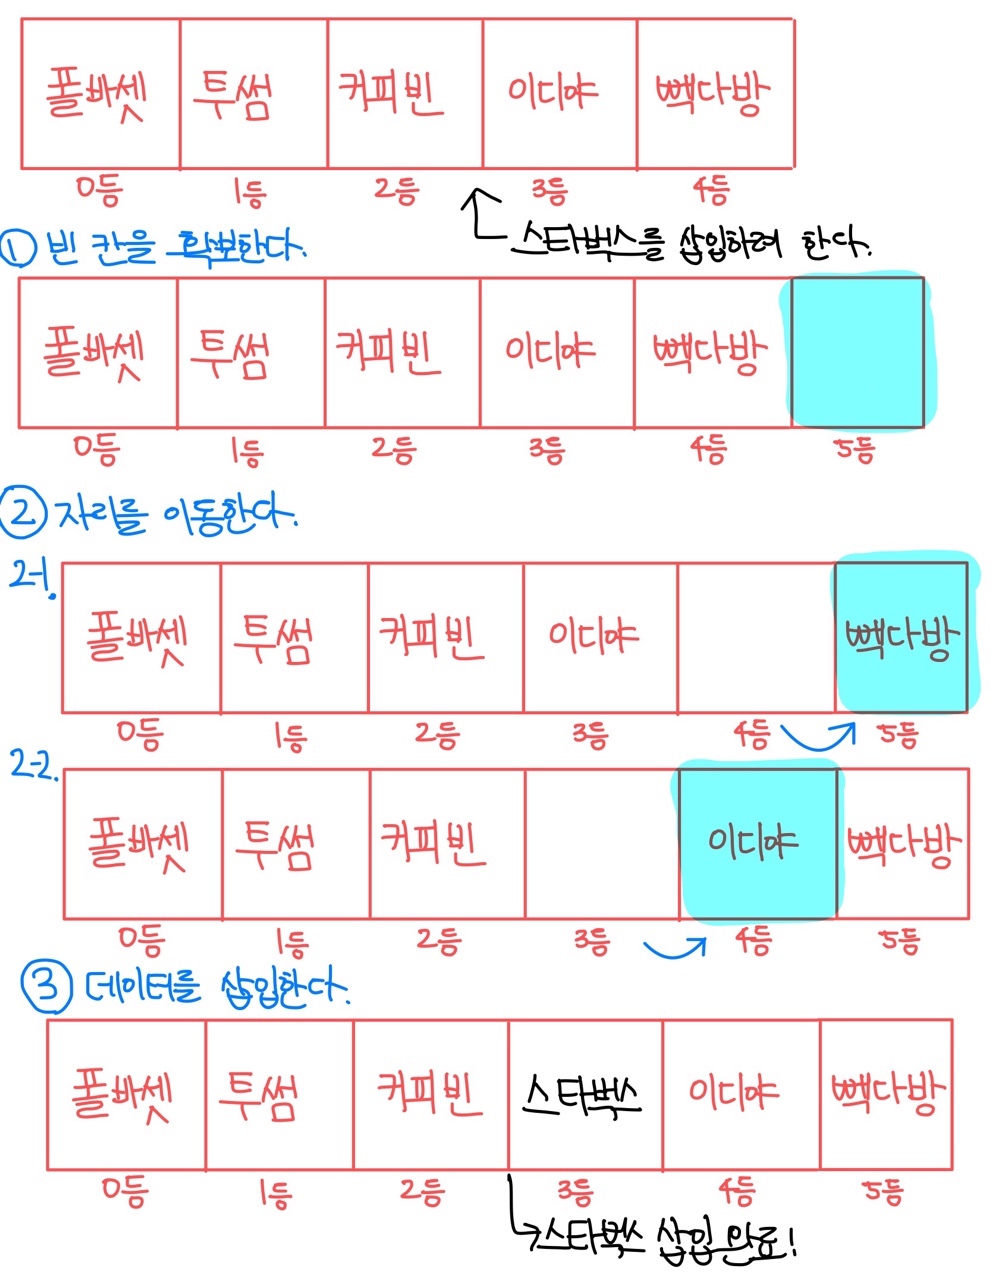 폴바셋 투썸 커피빈 이디야 빽다방
0등 1등 2등 3등 4등
스타벅스를 삽입하려 한다.
① 빈 칸을 확보한다.
폴바셋 투썸 커피빈 이디야 빽다방
0등 1등 2등 3등 4등 5등
② 자리를 이동한다.
2-1.
폴바셋 투썸 커피빈 이디야 빽다방
0등 1등 2등 3등 4등 5등
2-2.
폴바셋 투썸 커피빈 이디야 빽다방
0등 1등 2등 3등 4등 5등
③ 데이터를 삽입한다.
폴바셋 투썸 커피빈 스타벅스 이디야 빽다방
0등 1등 2등 3등 4등 5등
스타벅스 삽입 완료!